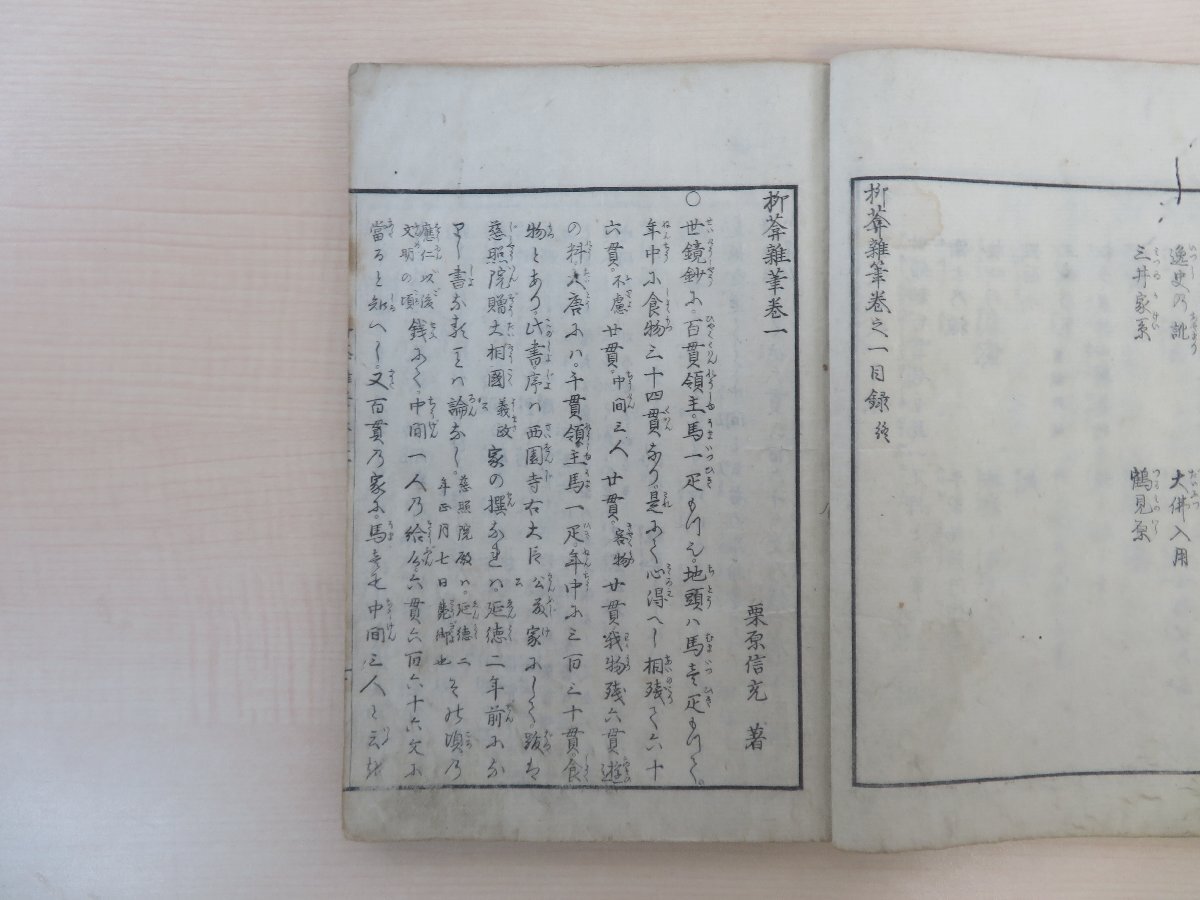 逸史乃訛 大佛入用
三井家系 鶴見原
柳菴雜筆卷之一目録終
柳菴雜筆卷一
栗原信充 著
○世鏡鈔に。百貫領主。馬一疋もつべし。地頭ハ馬壱疋もつて。
年中に食物三十四貫なり。是にて心得べし相残て六十
六貫。不慮廿貫。中間三人 廿貫。客物 廿貫我物残六貫遊
の料。大唐にハ。千貫領主馬一疋。年中に三百三十貫。食
物とあり。此書。序ハ西園寺右大臣 公 家にして。跋は
慈照院贈大相國 義政 家の撰なれバ。延徳二年前にな
りし書なる ハ論なし。 慈照院殿ハ。延徳二年正月七日薨御也 その頃乃
應仁以後文明の頃 錢にて中間一人乃給分六貫六百六十六文に
當ると知べし。又百貫乃家に。馬壱疋中間三人と云